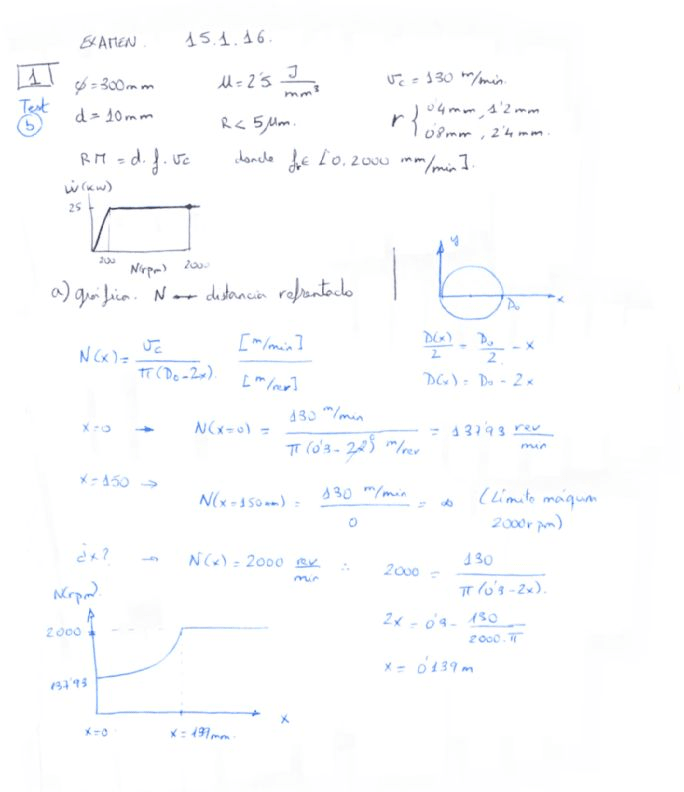 EXAMEN. 15.1.16.
1 φ=300mm μ=2'5 J/mm³ Vc = 130 m/min.
Test
b d = 10mm R < 5μm. r { 0'4mm, 1'2mm
0'8mm, 2'4mm.
RM = d. f. Vc donde fr ∈ [0, 2000 mm/min].
Ẇ(kW)
25
200 N(rpm) 2000
a) gráfica. N — distancia refrentado
y
D₀ x
N(x) = Vc / π(D₀-2x). [m/min] / [m/rev]
D(x)/2 = D₀/2 - x
D(x) = D₀ - 2x
x=0 → N(x=0) = 130 m/min / π(0'3-2x)⁰ m/rev = 137'93 rev/min
x=150 → N(x=150mm) = 130 m/min / 0 = ∞ (Límite máquina
2000rpm)
¿x? → N(x) = 2000 rev/min ∴ 2000 = 130 / π(0'3-2x).
2x = 0'3 - 130 / 2000.π
x = 0'139m
N(rpm).
2000
137'93
x
x=0 x = 139mm.